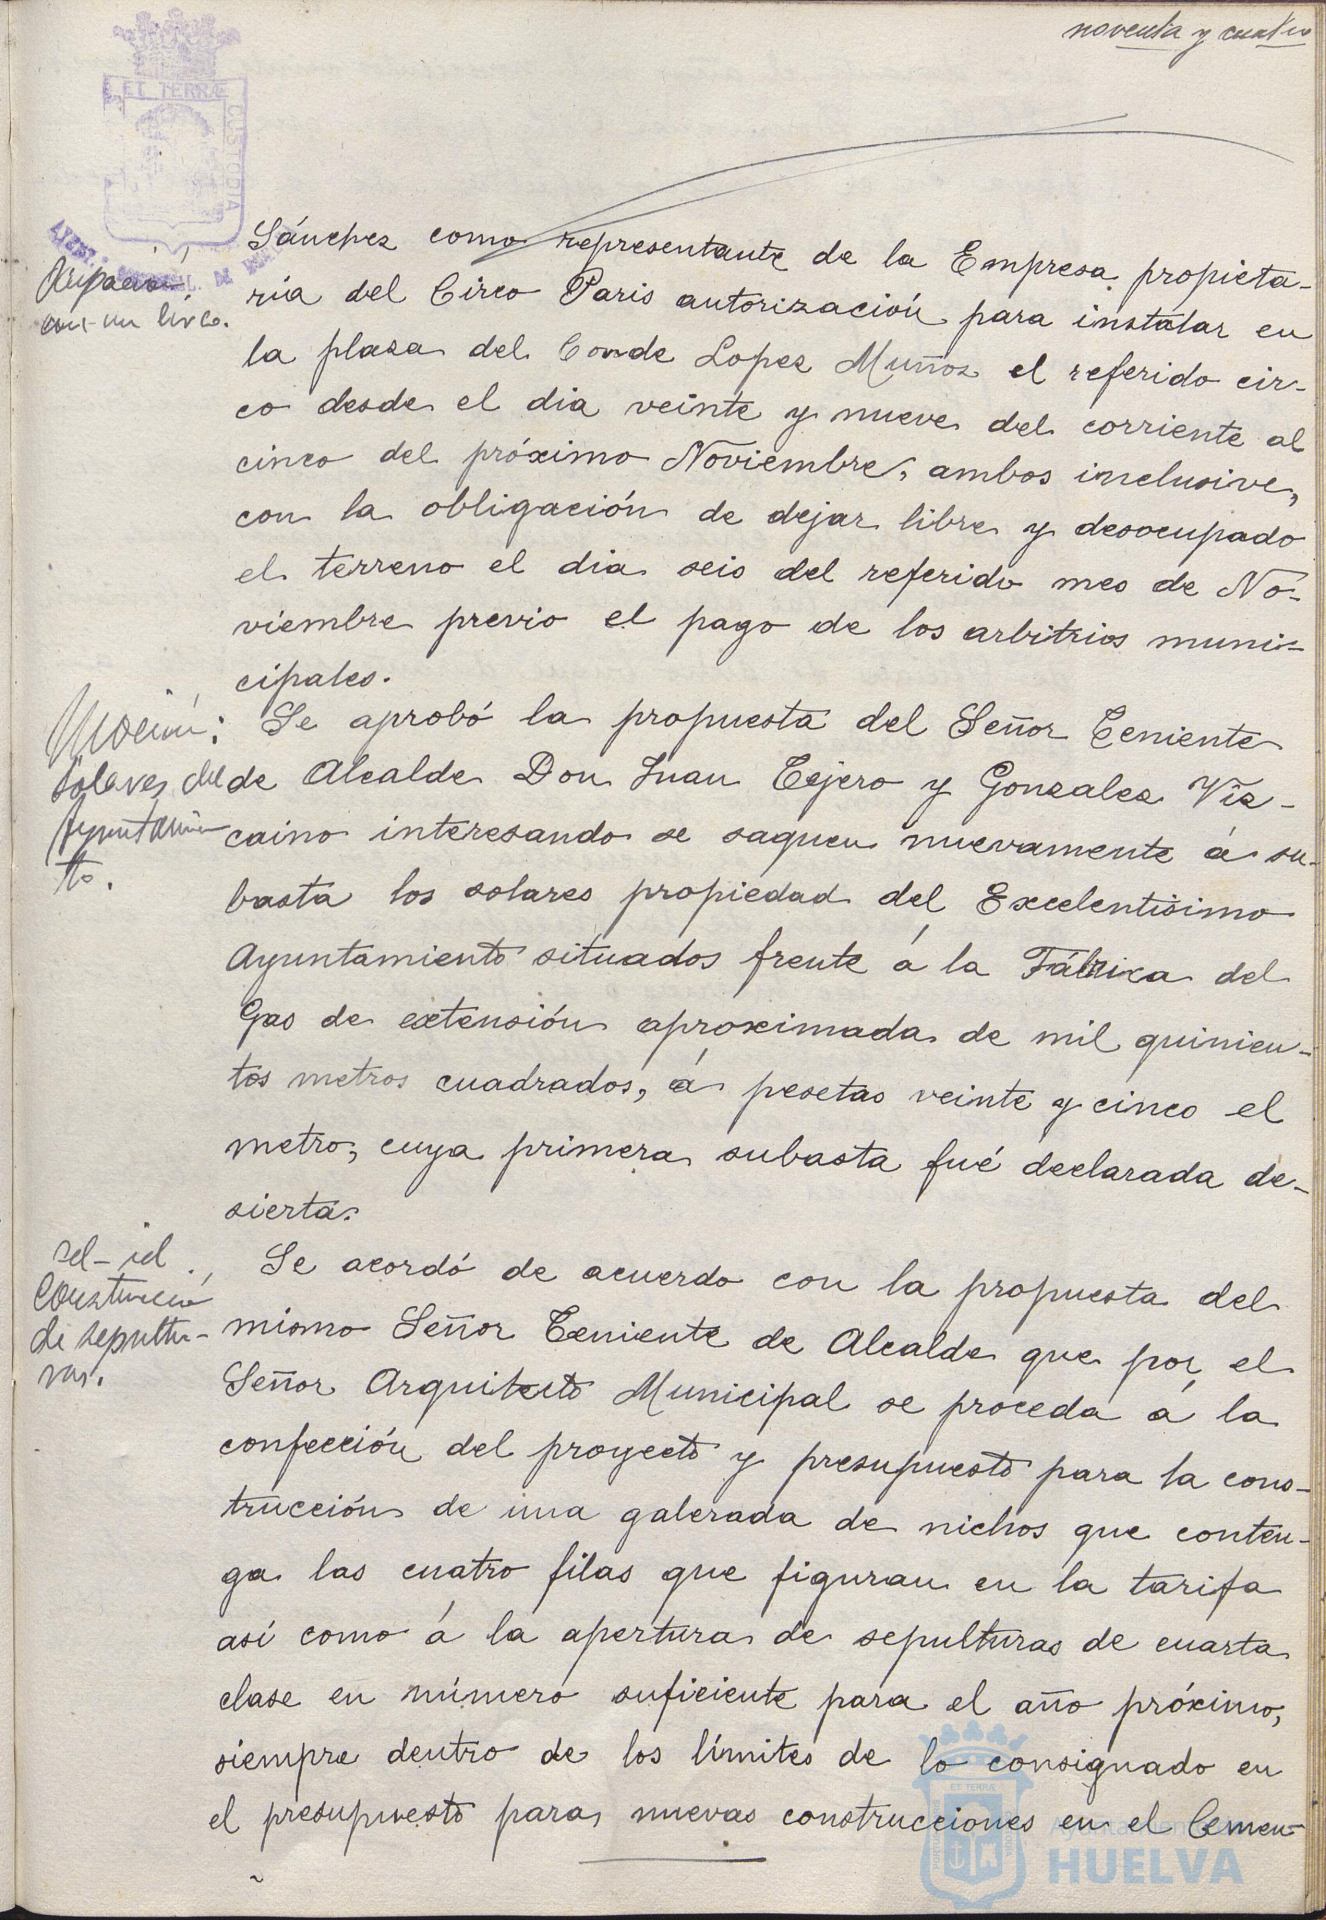 noventa y cuatro
ET TERRÆ
CUSTODIA
Sánchez como representante de la Empresa propieta-
ria del Circo Paris autorización para instalar en
la plaza del Conde Lopez Muñoz el referido cir-
co desde el dia veinte y nueve del corriente al
cinco del próximo Noviembre, ambos inclusive,
con la obligación de dejar libre y desocupado
el terreno el dia seis del referido mes de No-
viembre previo el pago de los arbitrios muni-
cipales.
Moción:
Solares del
Ayuntamien
to.
Se aprobó la propuesta del Señor Teniente
de Alcalde Don Juan Tejero y Gonzalez Viz-
caino interesando se saquen nuevamente á su-
basta los solares propiedad del Excelentisimo
Ayuntamiento situados frente á la Fábrica del
Gas de extensión aproximada de mil quinien-
tos metros cuadrados, á pesetas veinte y cinco el
metro, cuya primera subasta fué declarada de-
sierta.
Construcción
de sepultu-
ras.
Se acordó de acuerdo con la propuesta del
mismo Señor Teniente de Alcalde que por el
Señor Arquitecto Municipal se proceda á la
confección del proyecto y presupuesto para la cons-
trucción de una galerada de nichos que conten-
ga las cuatro filas que figuran en la tarifa
así como á la apertura de sepulturas de cuarta
clase en número suficiente para el año próximo,
siempre dentro de los límites de lo consignado en
el presupuesto para nuevas construcciones en el Cemen-
Ayuntamiento
HUELVA